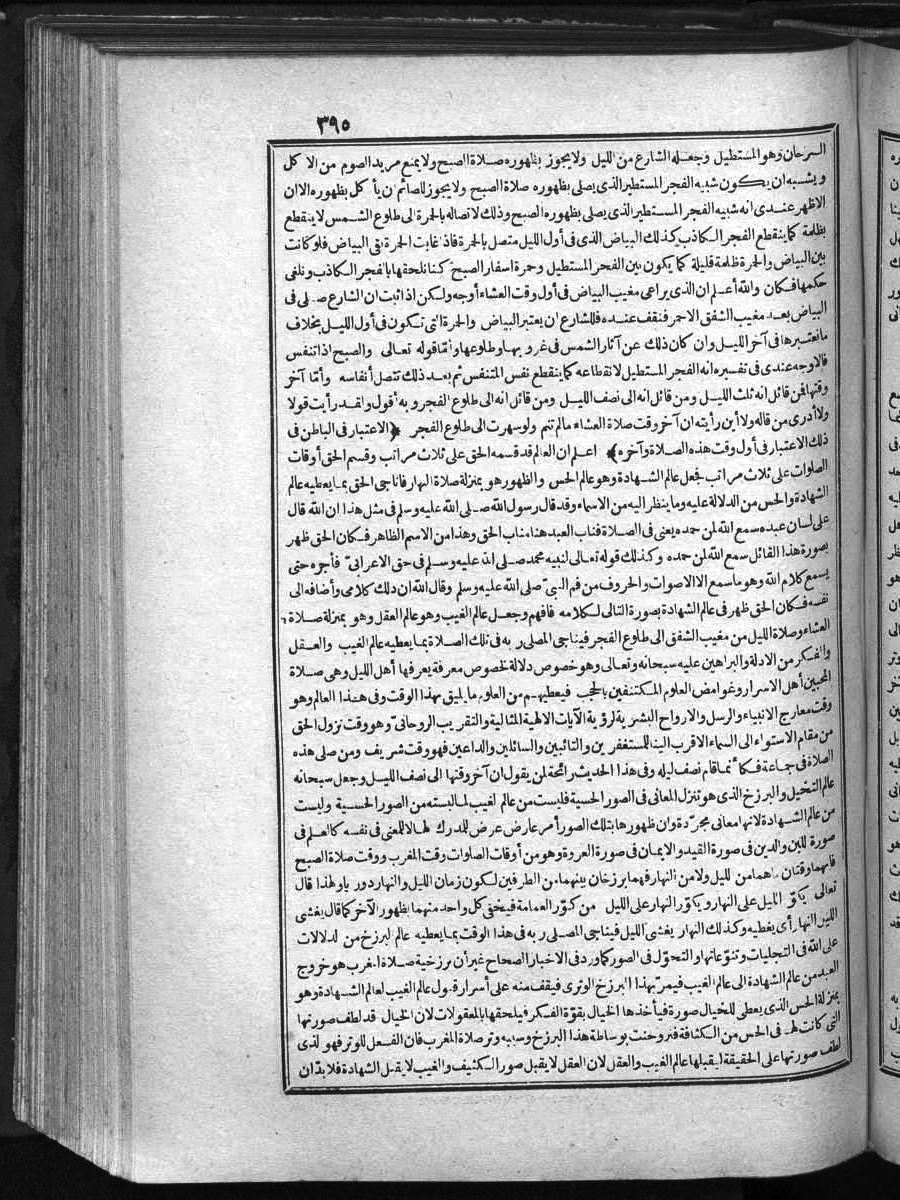 ٣٩٥
السرحان وهو المستطيل وجعله الشارع من الليل ولا يجوز بظهوره صلاة الصبح ولا يمنع مريد الصوم من الاكل
ويشبه ان يكون شبه الفجر المستطير الذى يصلى بظهوره صلاة الصبح ولا يجوز للصائم ان يأكل بظهوره الا ان
الاظهر عندى انه شبيه الفجر المستطير الذى يصلى بظهوره الصبح وذلك لاتصاله بالحمرة الى طلوع الشمس لا ينقطع
بظلمة كما ينقطع الفجر الكاذب كذلك البياض الذى فى أول الليل متصل بالحمرة فاذا غابت الحمرة بقى البياض فلو كانت
بين البياض والحمرة ظلمة قليلة كما يكون بين الفجر المستطيل وحمرة اسفار الصبح كنا نلحقها بالفجر الكاذب ونلغى
حكمها فكان والله أعلم ان الذى يراعى مغيب البياض فى أول وقت العشاء أوجه ولكن اذا ثبت ان الشارع صلى فى
البياض بعد مغيب الشفق الاحمر فنقف عنده فللشارع ان يعتبر البياض والحمرة التى تكون فى أول الليل بخلاف
ما نعتبرها فى آخر الليل وان كان ذلك عن آثار الشمس فى غروبها وطلوعها وأمّا قوله تعالى والصبح اذا تنفس
فالاوجه عندى فى تفسيره انه الفجر المستطيل لانقطاعه كما ينقطع نفس المتنفس ثم بعد ذلك تتصل أنفاسه وأمّا آخر
وقتها فمن قائل انه ثلث الليل ومن قائل انه الى نصف الليل ومن قائل انه الى طلوع الفجر وبه أقول ولقد رأيت قولا
ولا أدرى من قاله ولا أين رأيته ان آخر وقت صلاة العشاء مالم تنم ولو سهرت الى طلوع الفجر ﴿الاعتبار فى الباطن فى
ذلك الاعتبار فى أول وقت هذه الصلاة وآخره﴾ اعلم ان العالم قد قسمه الحق على ثلاث مراتب وقسم الحق أوقات
الصلوات على ثلاث مراتب فجعل عالم الشهادة وهو عالم الحس والظهور هو بمنزلة صلاة النهار فاناجى الحق بما يعطيه عالم
الشهادة والحس من الدلالة عليه وما ينظر اليه من الاسماء وقد قال رسول الله صلى الله عليه وسلم فى مثل هذا ان الله قال
على لسان عبده سمع الله لمن حمده يعنى فى الصلاة فناب العبد هنا مناب الحق وهذا من الاسم الظاهر فكان الحق ظهر
بصورة هذا القائل سمع الله لمن حمده وكذلك قوله تعالى لنبيه محمد صلى الله عليه وسلم فى حق الاعرابىّ فأجره حتى
يسمع كلام الله وهو ما سمع الا الاصوات والحروف من فم النبىّ صلى الله عليه وسلم وقال الله ان ذلك كلامى وأضافه الى
نفسه فكان الحق ظهر فى عالم الشهادة بصورة التالى لكلامه فافهم وجعل عالم الغيب وهو عالم العقل وهو بمنزلة صلاة
العشاء وصلاة الليل من مغيب الشفق الى طلوع الفجر فيناجى المصلى ربه فى تلك الصلاة بما يعطيه عالم الغيب والعقل
والفكر من الادلة والبراهين عليه سبحانه وتعالى وهو خصوص دلالة لخصوص معرفة يعرفها أهل الليل وهى صلاة
المحبين أهل الاسرار وغوامض العلوم المكتنفين بالحجب فيعطيهم من العلوم ما يليق بهذا الوقت وفى هذا العالم وهو
وقت معارج الانبياء والرسل والارواح البشرية لرؤية الآيات الالهية المثالية والتقريب الروحانىّ وهو وقت نزول الحق
من مقام الاستواء الى السماء الاقرب الينا للمستغفرين والتائبين والسائلين والداعين فهو وقت شريف ومن صلى هذه
الصلاة فى جماعة فكأنما قام نصف ليله وفى هذا الحديث رائحة لمن يقول ان آخر وقتها الى نصف الليل وجعل سبحانه
عالم التخيل والبرزخ الذى هو تنزل المعانى فى الصور الحسية فليست من عالم الغيب لما لبسته من الصور الحسية وليست
من عالم الشهادة لانها معانى مجرّدة وان ظهورها بتلك الصور أمر عارض عرض للمدرك لها لا للمعنى فى نفسه كالعلم فى
صورة اللبن والدين فى صورة القيد والايمان فى صورة العروة وهو من أوقات الصلوات وقت المغرب ووقت صلاة الصبح
فانهما وقتان ماهما من الليل ولا من النهار فهما برزخان بينهما من الطرفين لكون زمان الليل والنهار دور يا ولهذا قال
تعالى يكوّر الليل على النهار ويكوّر النهار على الليل من كوّر العمامة فيخفى كل واحد منهما بظهور الآخر كما قال يغشى
الليل النهار أى يغطيه وكذلك النهار يغشى الليل فيناجى المصلى ربه فى هذا الوقت بما يعطيه عالم البرزخ من الدلالات
على الله فى التجليات وتنوّعاتها والتحوّل فى الصور كما ورد فى الاخبار الصحاح غير أن برزخية صلاة المغرب هو خروج
العبد من عالم الشهادة الى عالم الغيب فيمرّ بهذا البرزخ الوترى فيقف منه على أسرار قبول عالم الغيب لعالم الشهادة وهو
بمنزلة الحس الذى يعطى للخيال صورة فيأخذها الخيال بقوّة الفكر فيلحقها بالمعقولات لان الخيال قد لطف صورتها
التى كانت لها فى الحس من الكثافة فتروحنت بوساطة هذا البرزخ وسببه وتر صلاة المغرب فان الفعل للوتر فهو الذى
لطف صورتها على الحقيقة ليقبلها عالم الغيب والعقل لان العقل لا يقبل صور الكثيف والغيب لا يقبل الشهادة فلا بدّ ان